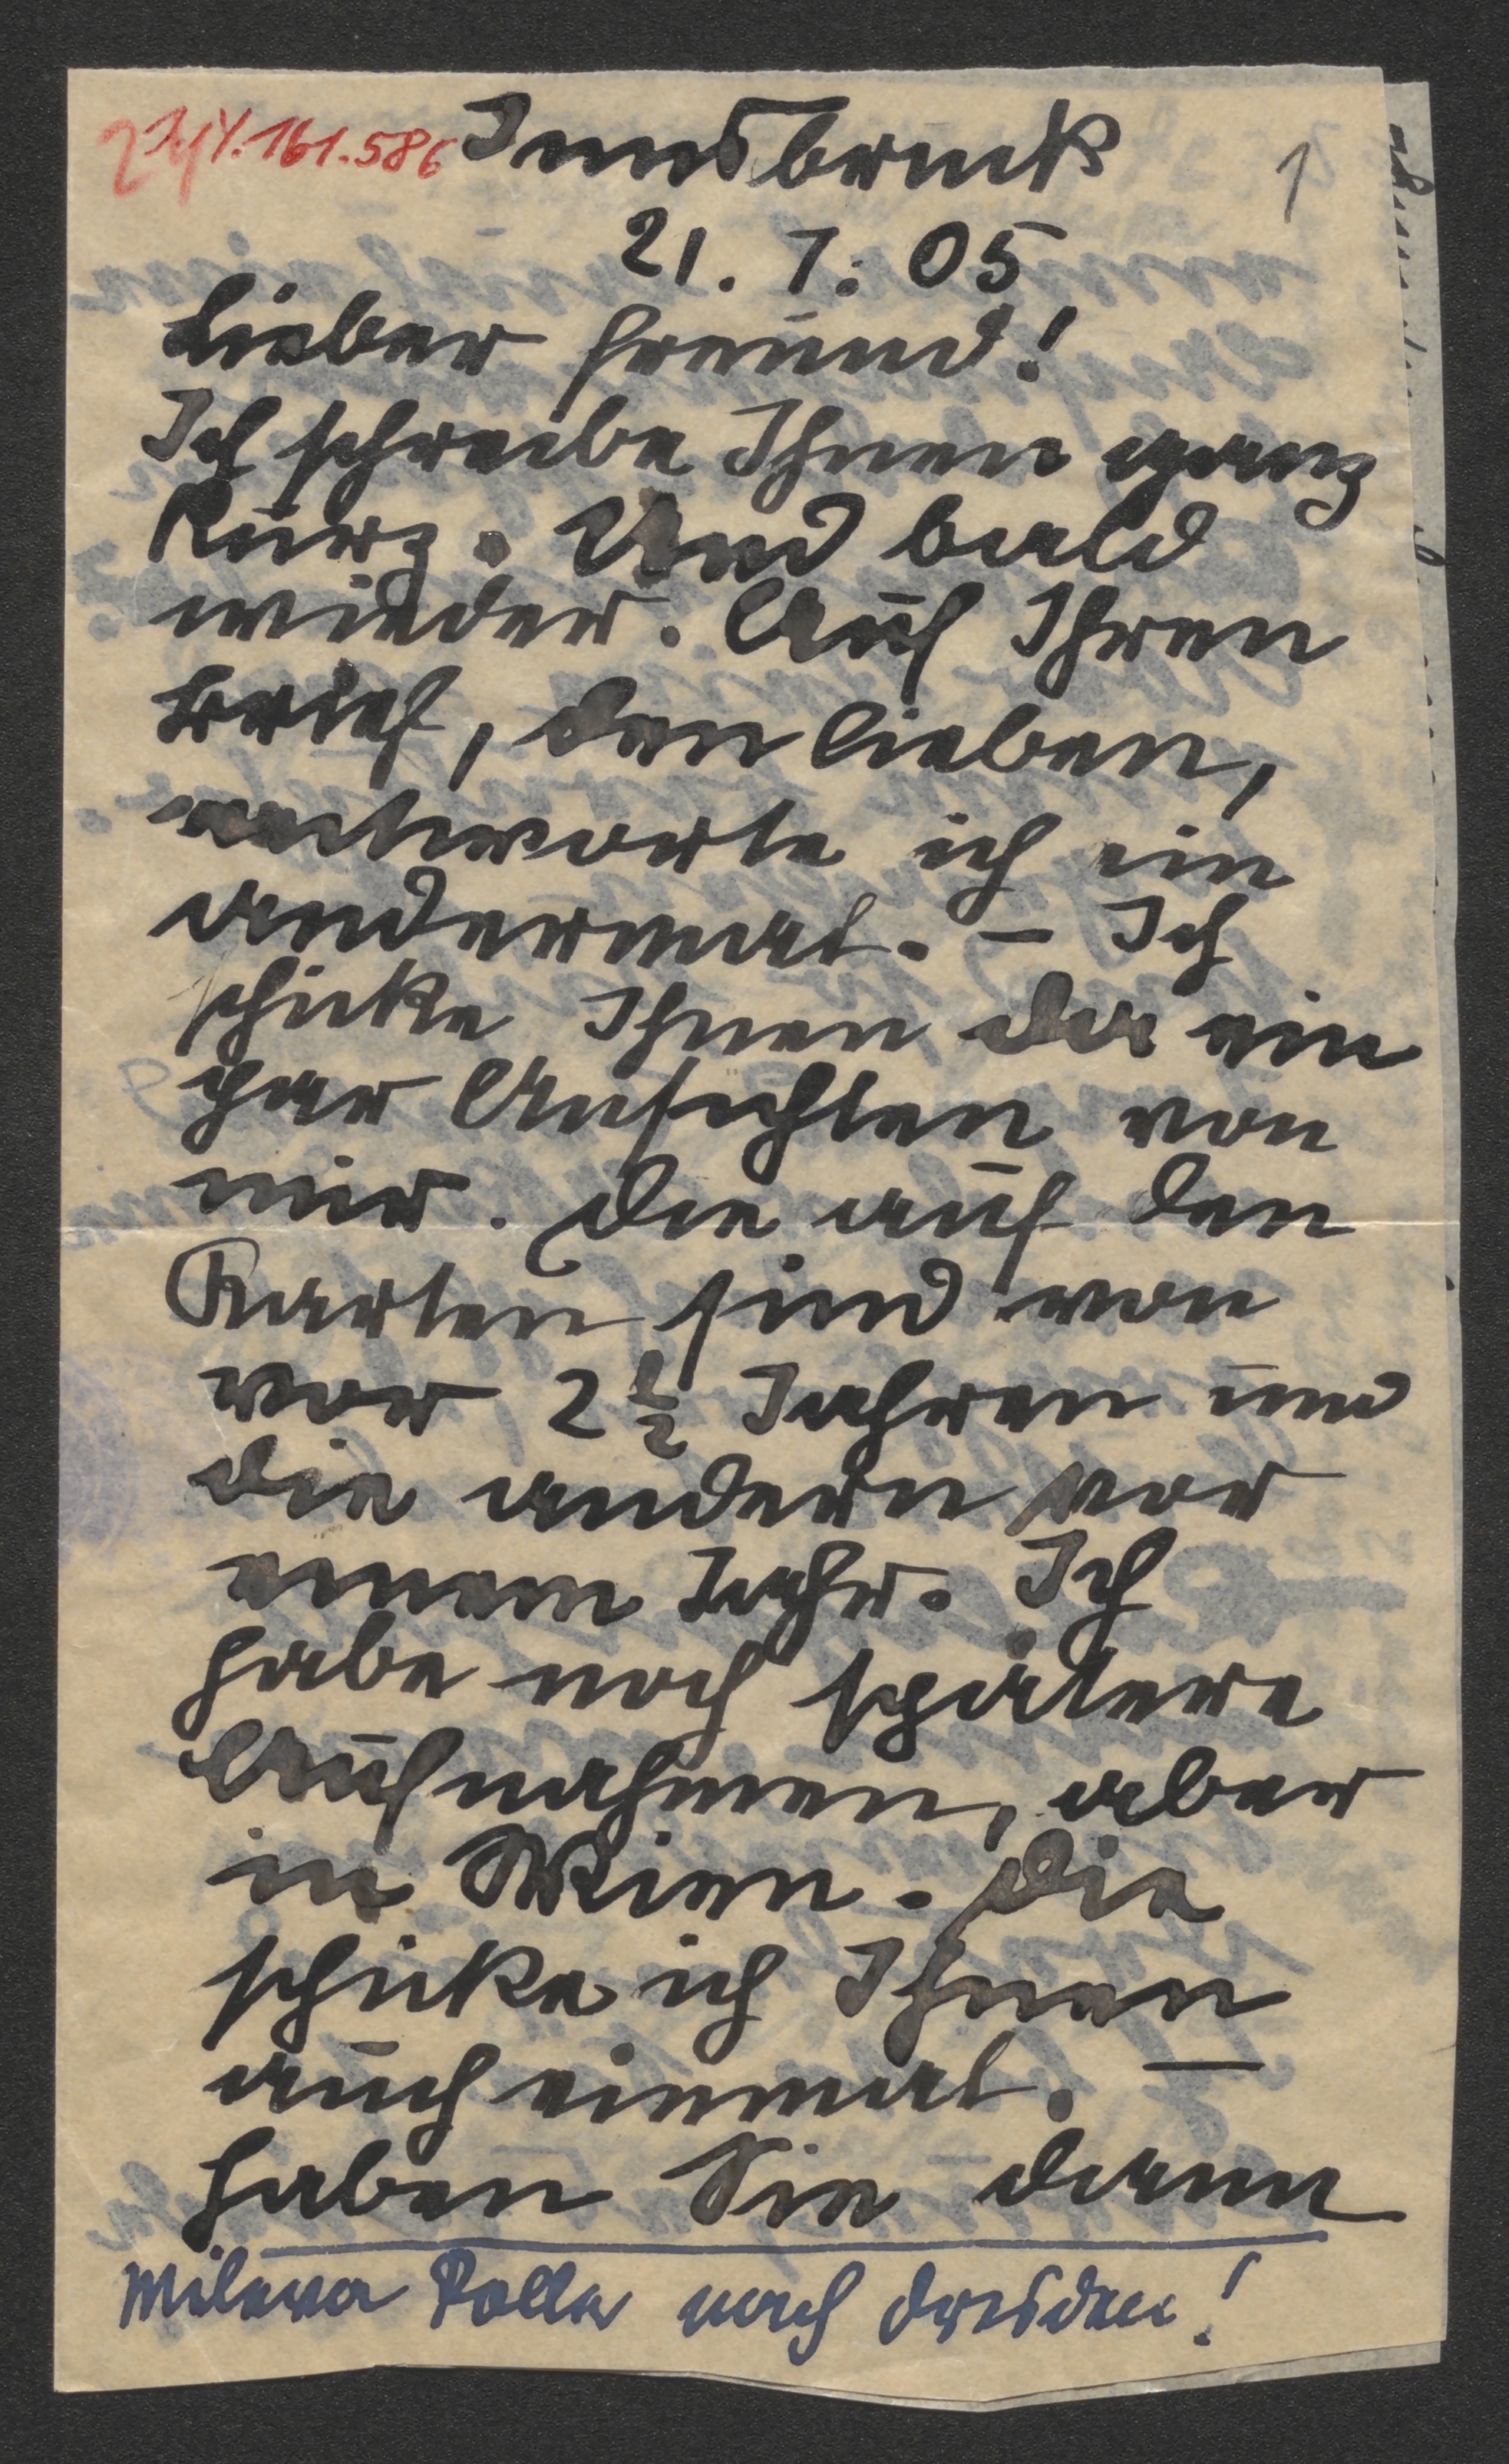 I.N. 161.586
Innsbruck
1
21. 7. 05
Lieber Freund!
Ich schreibe Ihnen ganz
kurz. Und bald
wieder. Auf Ihren
Brief, den lieben,
antworte ich ein
andermal. – Ich
schicke Ihnen da ein
par Ansichten von
mir. Die auf den
Karten sind von
vor 2½ Jahren und
die andern vor
einem Jahr. Ich
habe noch spätere
Aufnahmen, aber
in Wien. Die
schicke ich Ihnen
auch einmal. –
Haben Sie dann
Milena Rolle nach Dresden!